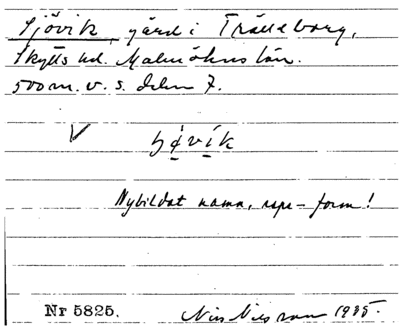 Sjövik, gård i Trälleborg,
Skytts hd. Malmöhus län.
500 m. v. s. delen 7.
V
Nybildat namn, rspr-form!
Nr 5825. Nils Nilsson 1935.